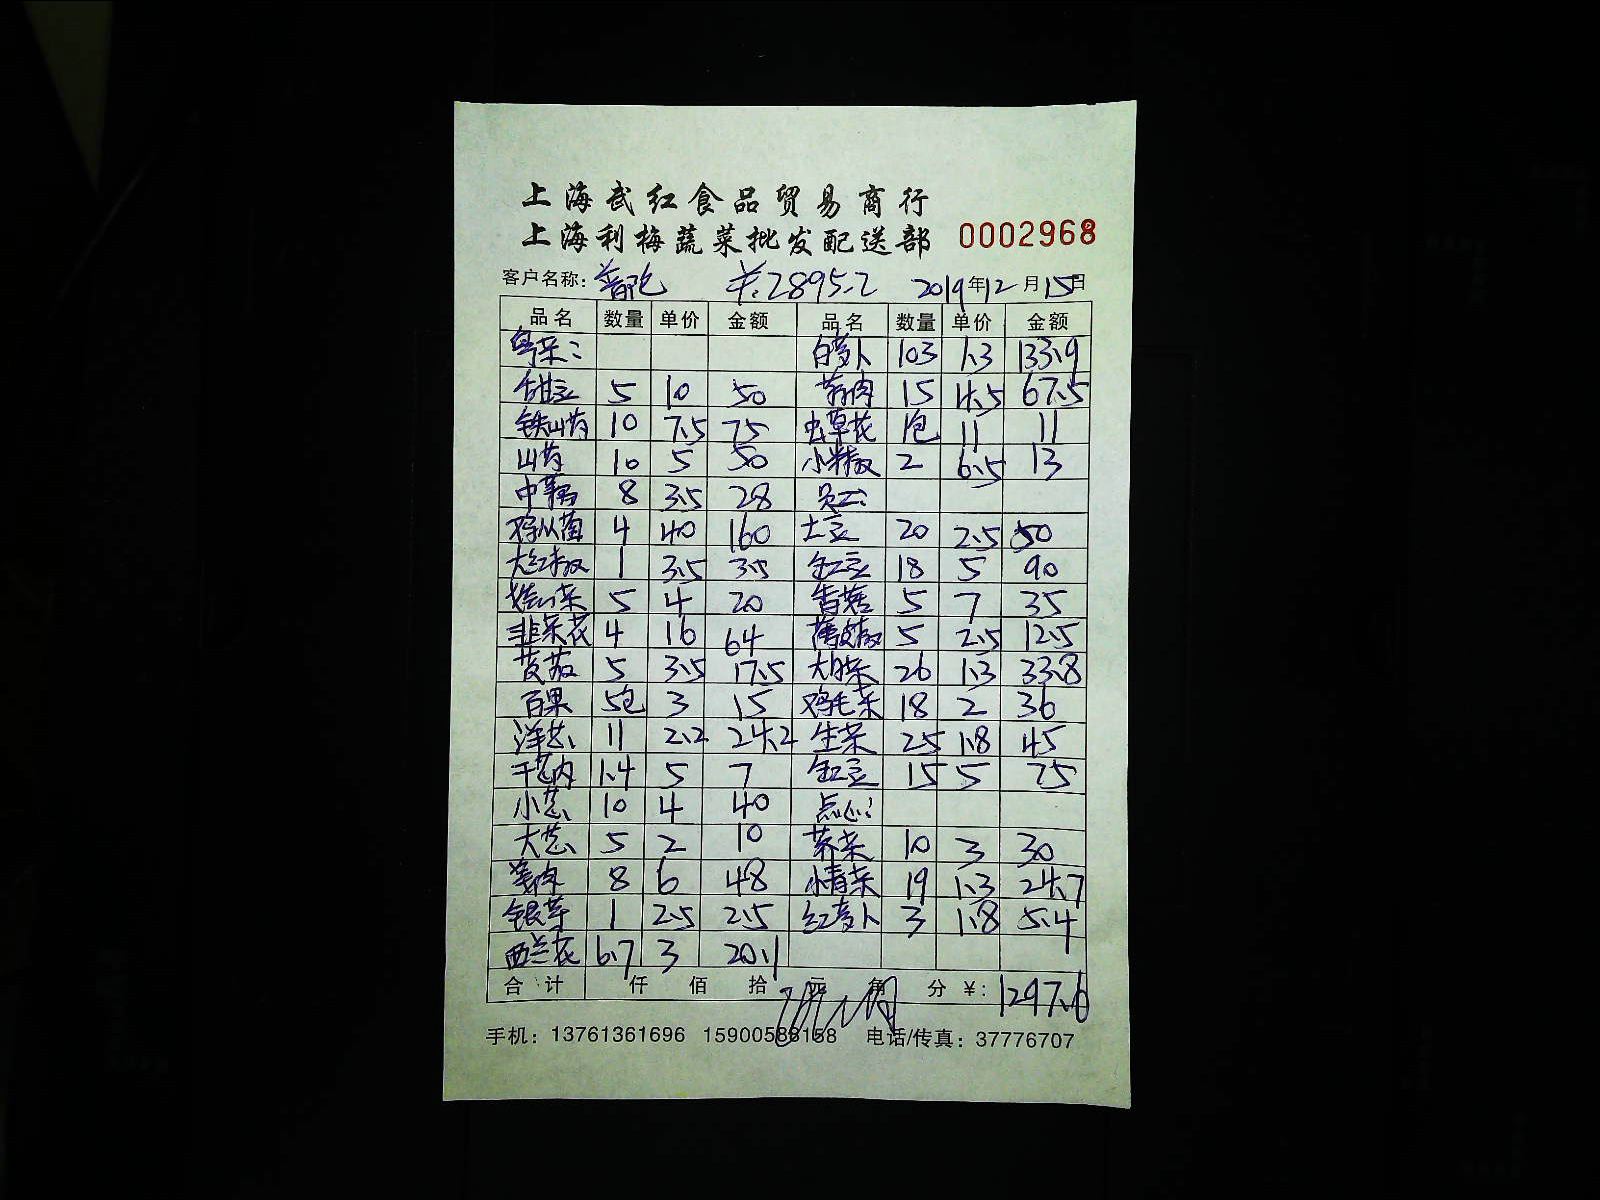 上海武红食品贸易商行
上海利梅蔬菜批发配送部 0002968
客户名称: ¥:2895.2 2019年12月15日
品名 数量 单价 金额 品名 数量 单价 金额
粤菜: 白萝卜 103 1.3 133.9
甜豆 5 10 50 蒜肉 15 4.5 67.5
铁山药 10 7.5 75 虫草花 1包 11 11
山药 10 5 50 小米椒 2 6.5 13
中藕 8 3.5 28 员工:
鸡从菌 4 40 160 土豆 20 2.5 50
大红椒 1 3.5 3.5 缸豆 18 5 90
5 4 20 香菇 5 7 35
韭菜花 4 16 64 薄皮椒 5 2.5 12.5
茨菇 5 3.5 17.5 大白菜 26 1.3 33.8
百果 5包 3 15 鸡毛菜 18 2 36
洋芯 11 2.2 24.2 生菜 25 1.8 45
干芯肉 1.4 5 7 缸豆 15 5 75
小芯 10 4 40 点心:
大芯 5 2 10 荠菜 10 3 30
姜肉 8 6 48 小青菜 19 1.3 24.7
银芽 1 2.5 2.5 红萝卜 3 1.8 5.4
西兰花 6.7 3 20.1
合计 仟 佰 拾 元 角 分 ¥: 1297.6
手机: 13761361696 15900586158 电话/传真: 37776707